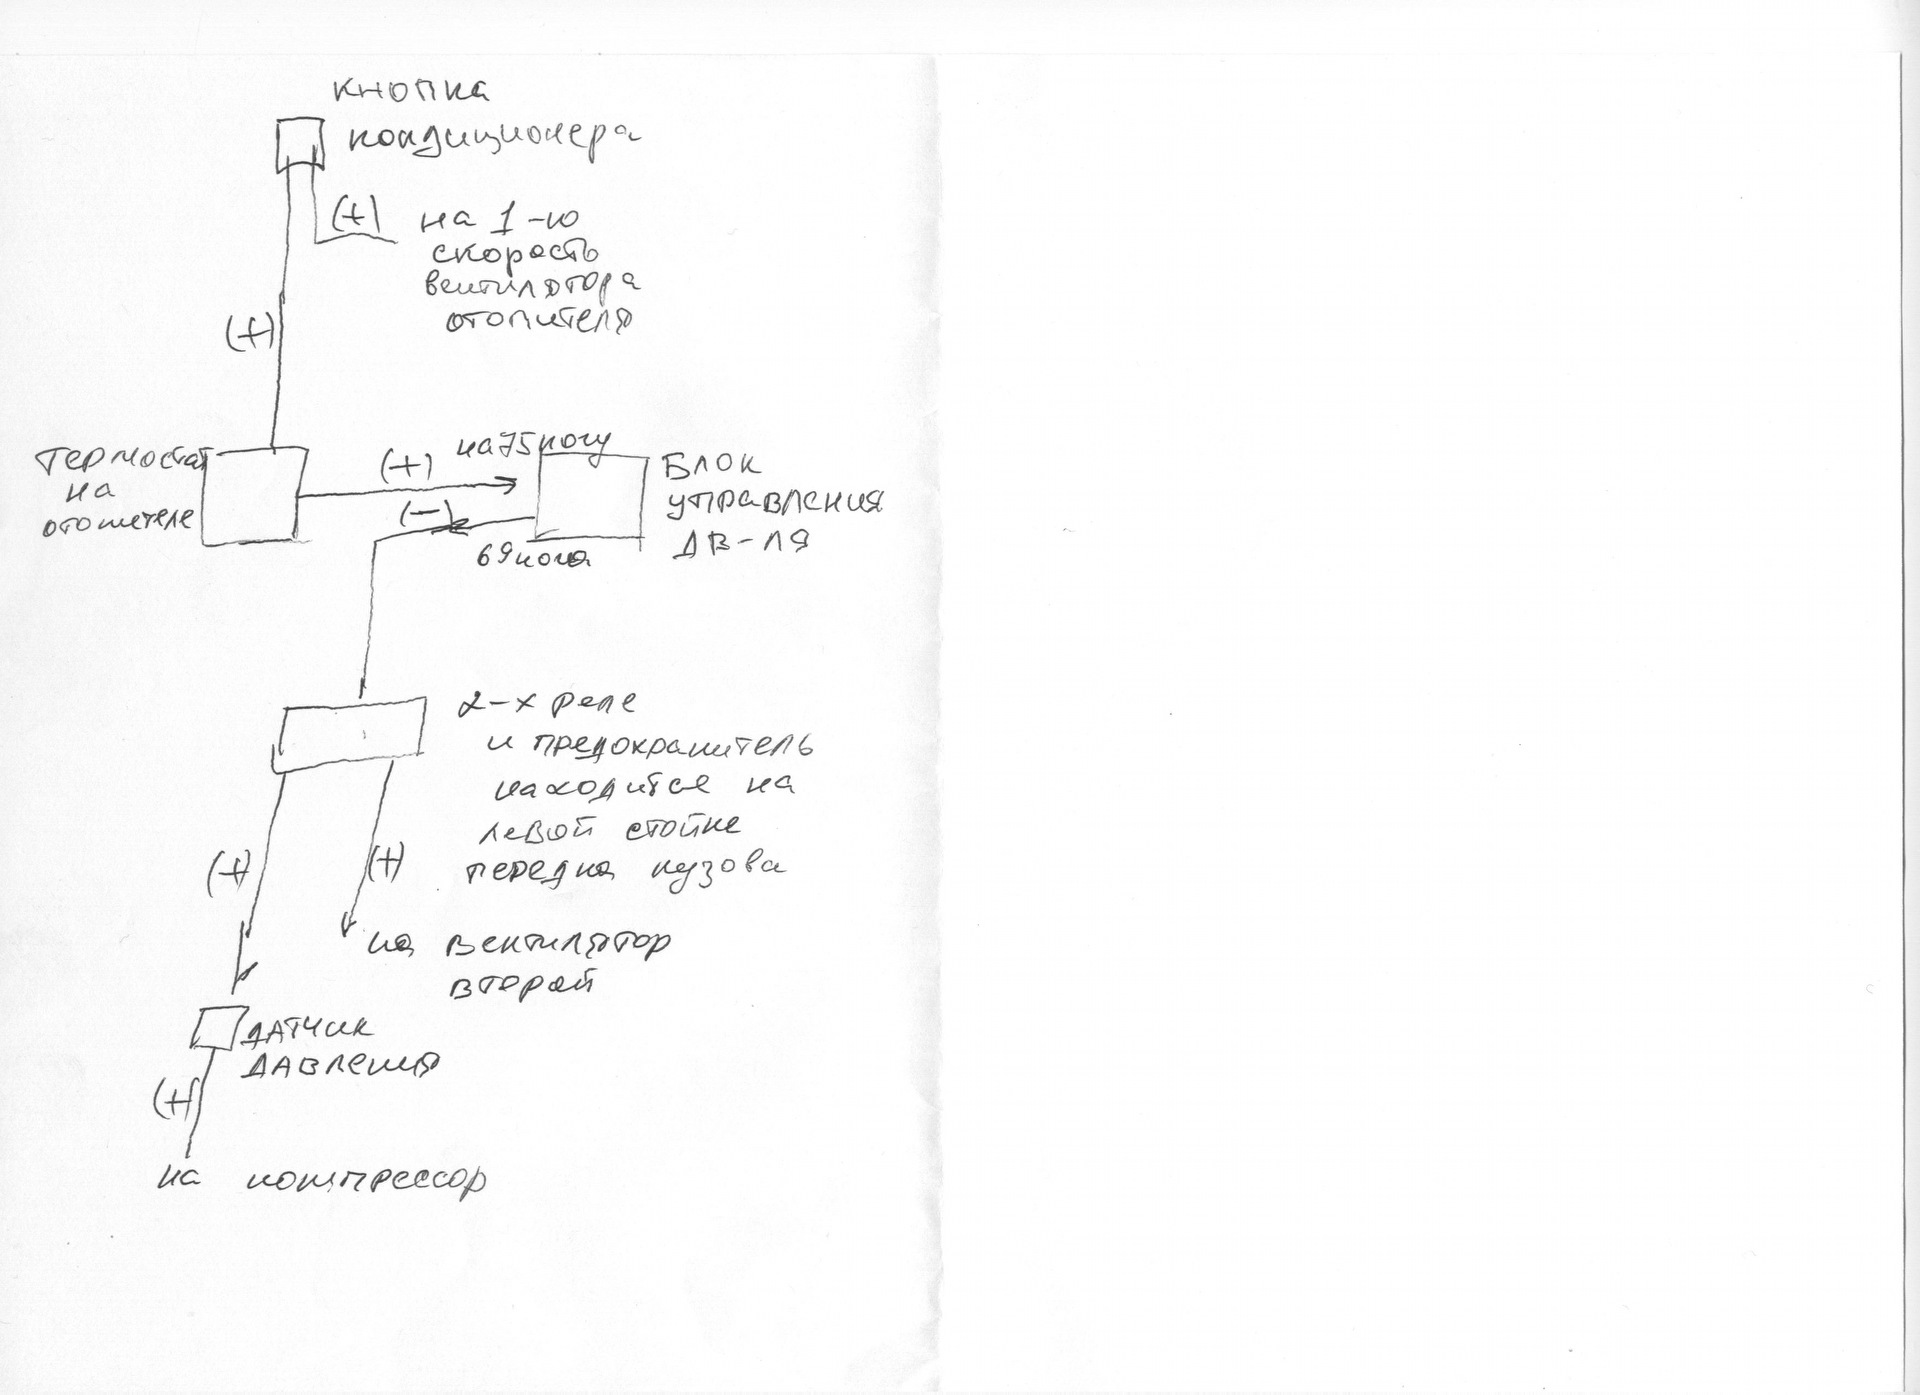 кнопка
кондиционера
(+) на 1-ю
скорость
вентилятора
отопителя
(+)
термостат
на
отопителе
(+)
на 75 ногу
Блок
управления
дв-ля
(-)
69 нога
2-х реле
и предохранитель
находится на
левой стойке
передка кузова
(+)
(+)
на вентилятор
второй
датчик
давления
(+)
на компрессор